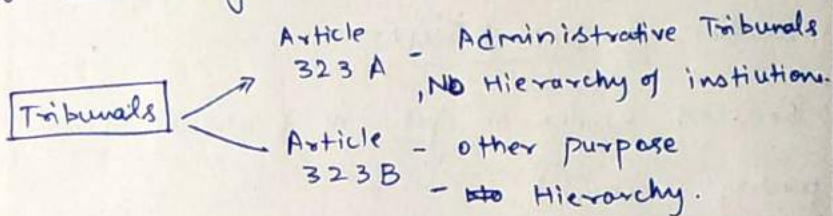 Tribunals
Article 323 A - Administrative Tribunals
, No Hierarchy of instiutions.
Article 323B - other purpose
- Hierarchy.